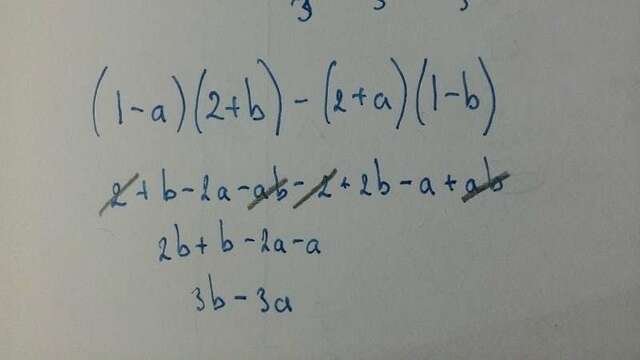 (1-a)(2+b) - (2+a)(1-b)
2+b-2a-ab-2+2b-a+ab
2b+b-2a-a
3b-3a